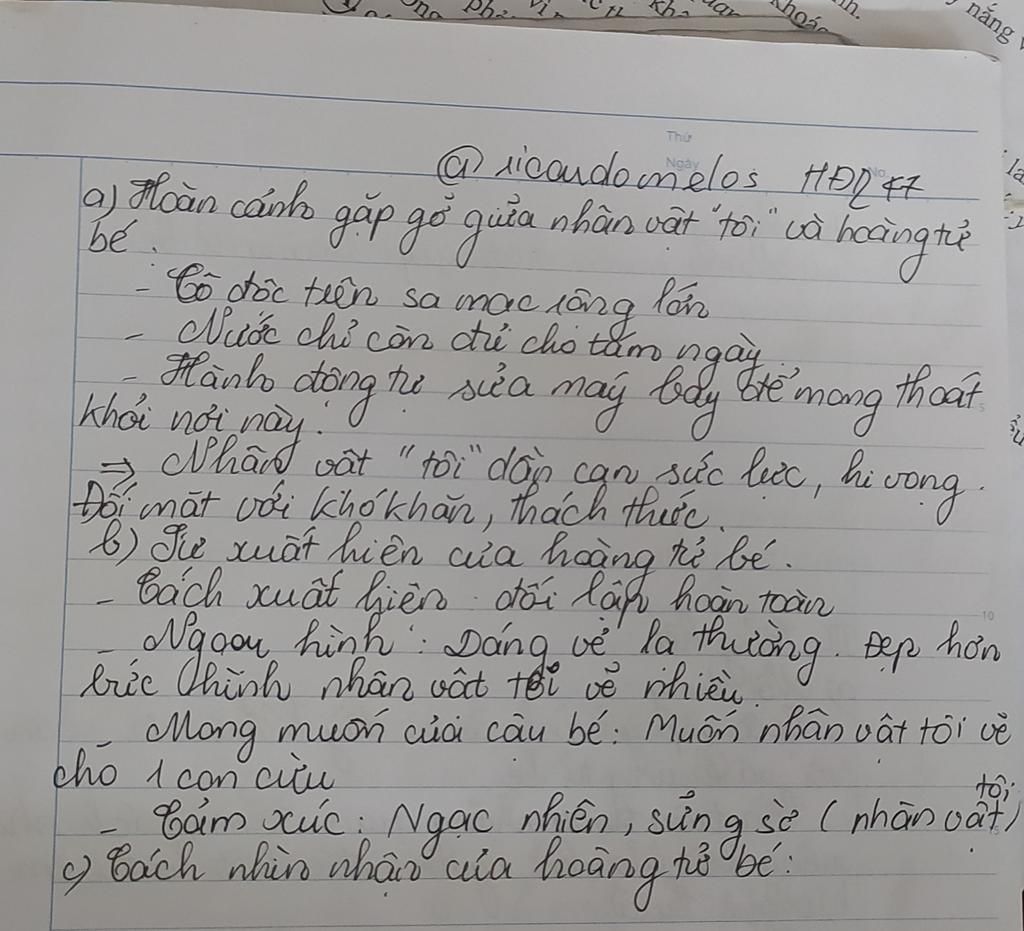 Thứ
Ngày
No.
@ricardomelos HĐQ 47
a) Hoàn cảnh gặp gỡ giữa nhân vật "tôi" và hoàng tử
bé.
- Cô độc trên sa mạc rộng lớn
- Nước chỉ còn đủ cho tám ngày.
- Hành động tự sửa máy bay để mong thoát
khỏi nơi này.
⇒ Nhân vật "tôi" dần cạn sức lực, hi vọng.
Đối mặt với khó khăn, thách thức.
b) Sự xuất hiện của hoàng tử bé.
- Cách xuất hiện: đối lập hoàn toàn
- Ngoại hình: Dáng vẻ lạ thường. Đẹp hơn
bức hình nhân vật tôi vẽ nhiều.
- Mong muốn của cậu bé: Muốn nhân vật tôi vẽ
cho 1 con cừu
- Cảm xúc: Ngạc nhiên, sửng sờ (nhân vật tôi)
c) Cách nhìn nhận của hoàng tử bé: